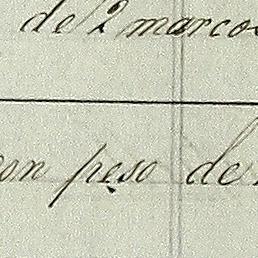 de 2 marcos
con peso de